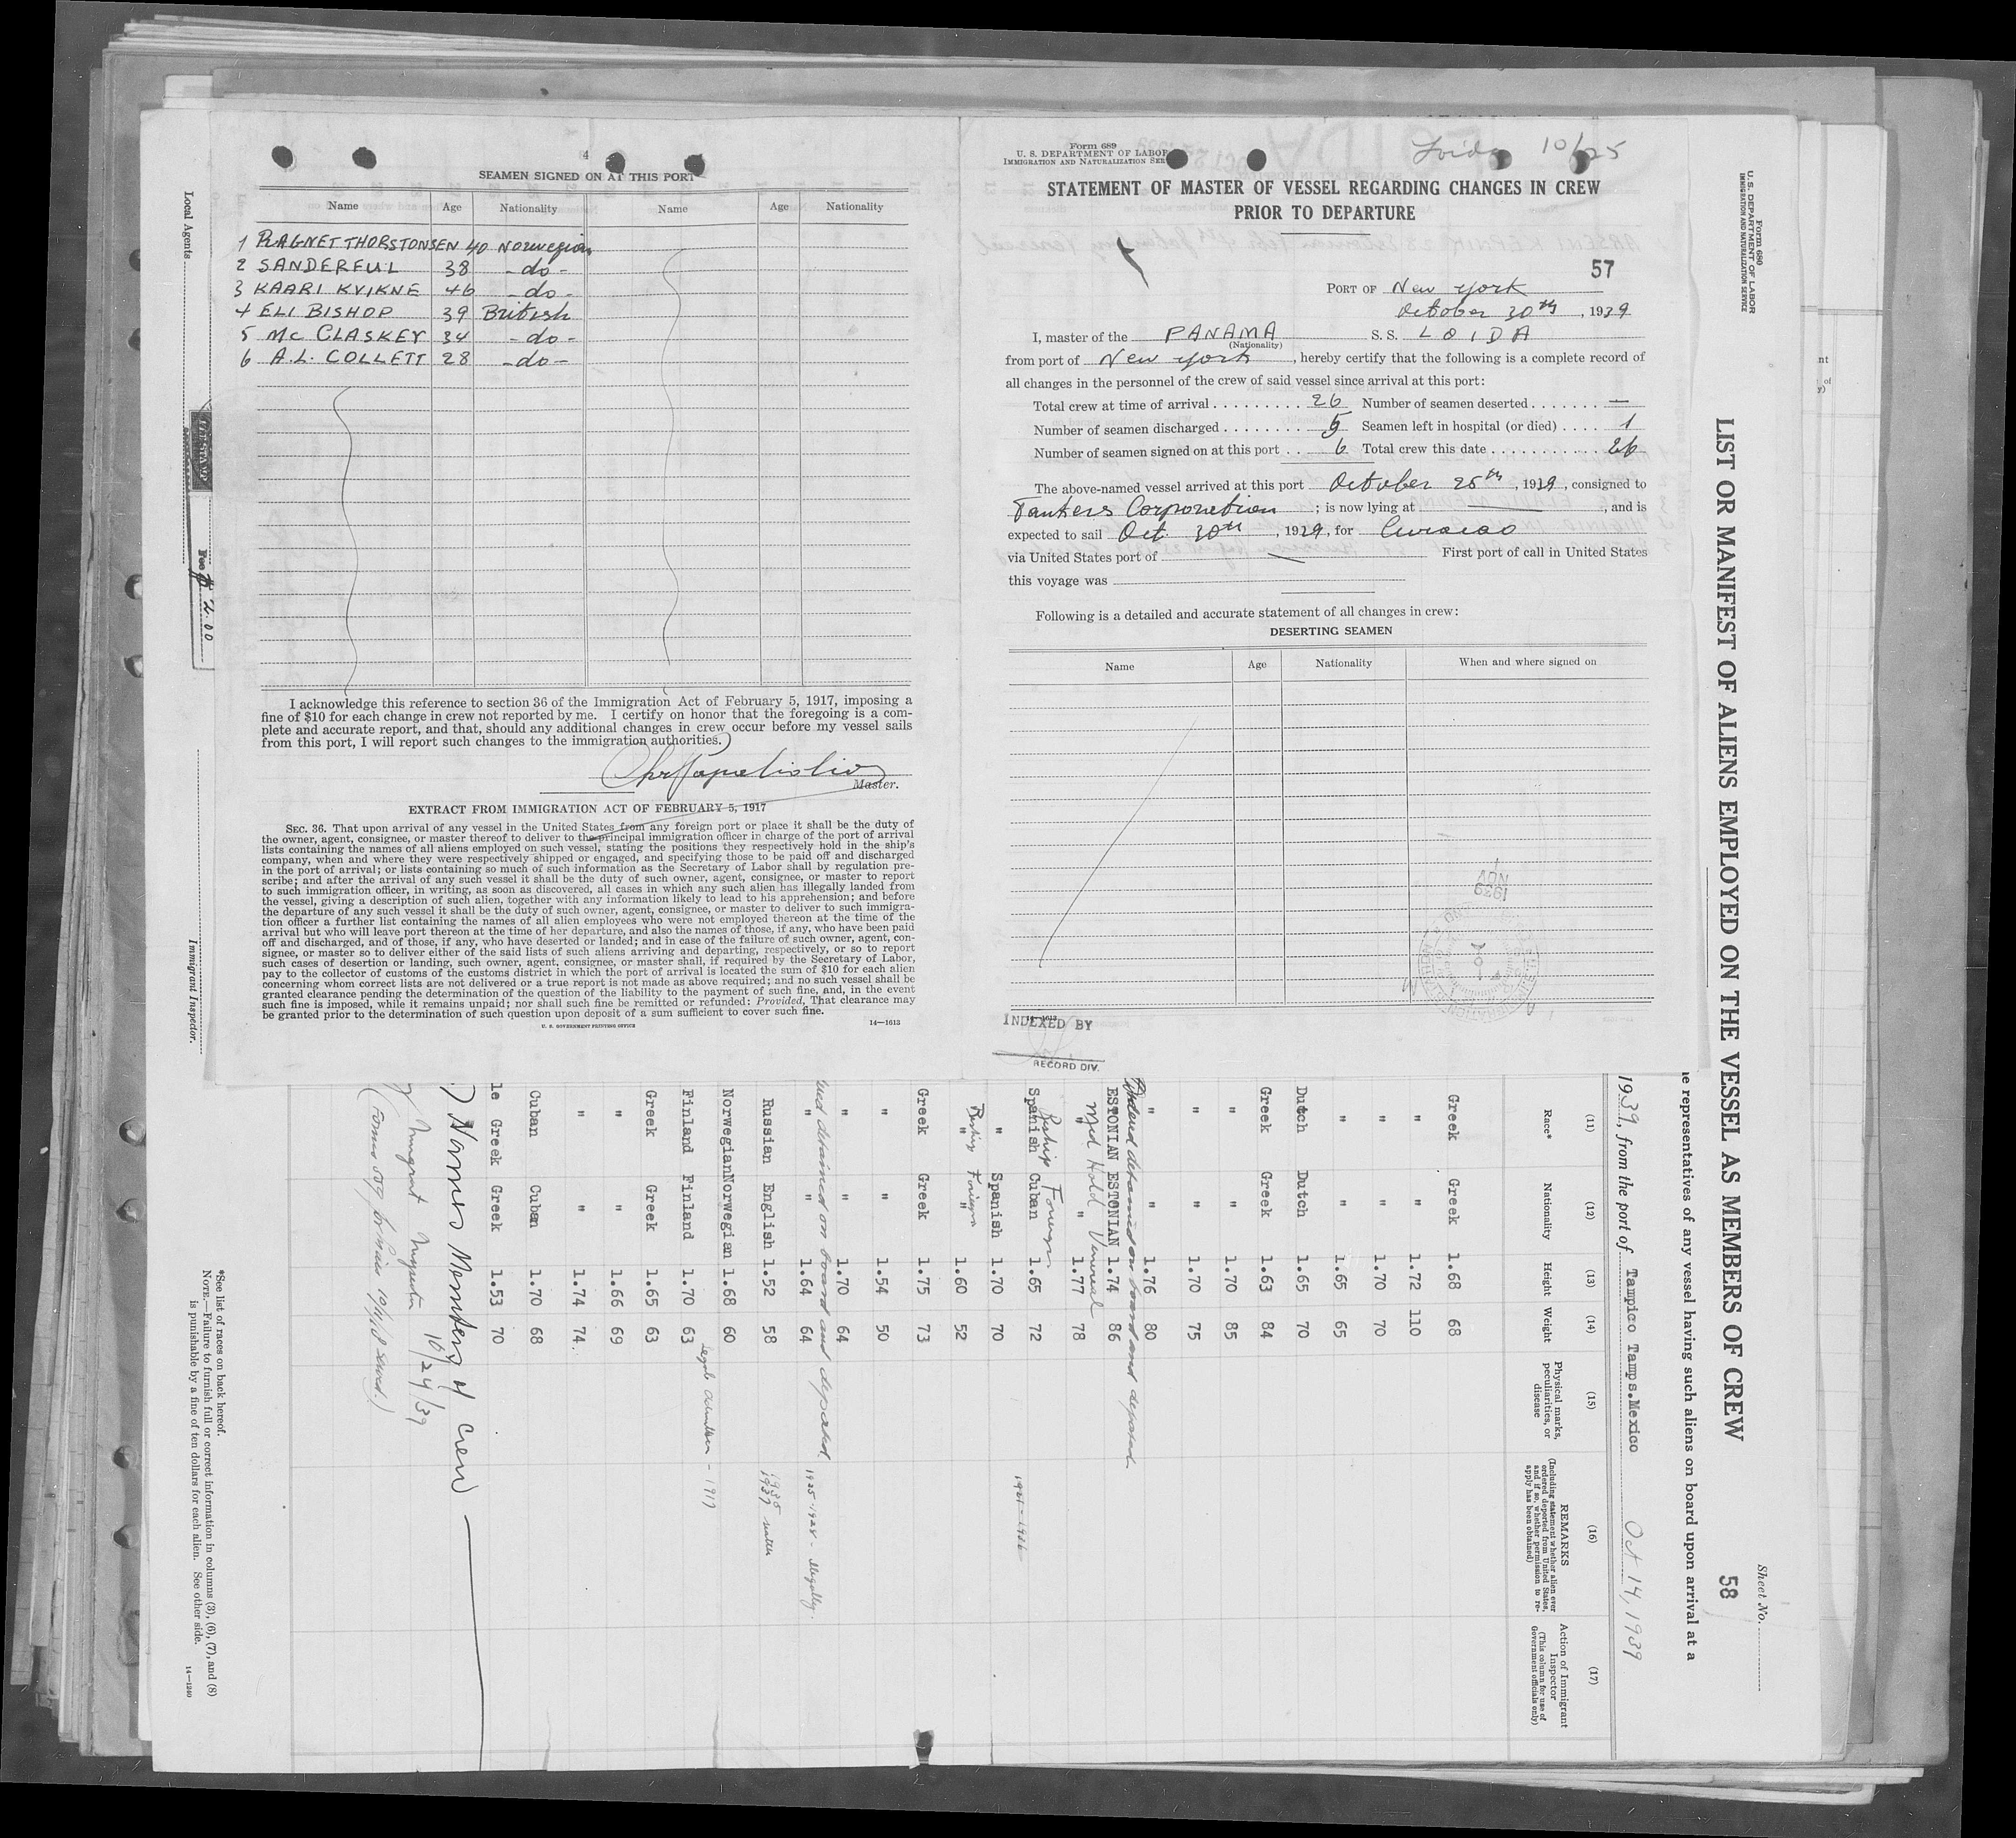 4
SEAMEN SIGNED ON AT THIS PORT
Name Age Nationality Name Age Nationality
1 RAGNET THORSTONSEN 40 Norwegian
2 SANDEREUL 38 -do-
3 KAARI KVIKNE 46 -do-
4 ELI BISHOP 39 British
5 Mc CLASKEY 34 -do-
6 A.L. COLLETT 28 -do-
I acknowledge this reference to section 36 of the Immigration Act of February 5, 1917, imposing a
fine of $10 for each change in crew not reported by me. I certify on honor that the foregoing is a com-
plete and accurate report, and that, should any additional changes in crew occur before my vessel sails
from this port, I will report such changes to the immigration authorities.
Master.
EXTRACT FROM IMMIGRATION ACT OF FEBRUARY 5, 1917
SEC. 36. That upon arrival of any vessel in the United States from any foreign port or place it shall be the duty of
the owner, agent, consignee, or master thereof to deliver to the principal immigration officer in charge of the port of arrival
lists containing the names of all aliens employed on such vessel, stating the positions they respectively hold in the ship's
company, when and where they were respectively shipped or engaged, and specifying those to be paid off and discharged
in the port of arrival; or lists containing so much of such information as the Secretary of Labor shall by regulation pre-
scribe; and after the arrival of any such vessel it shall be the duty of such owner, agent, consignee, or master to report
to such immigration officer, in writing, as soon as discovered, all cases in which any such alien has illegally landed from
the vessel, giving a description of such alien, together with any information likely to lead to his apprehension; and before
the departure of any such vessel it shall be the duty of such owner, agent, consignee, or master to deliver to such immigra-
tion officer a further list containing the names of all alien employees who were not employed thereon at the time of the
arrival but who will leave port thereon at the time of her departure, and also the names of those, if any, who have been paid
off and discharged, and of those, if any, who have deserted or landed; and in case of the failure of such owner, agent, con-
signee, or master so to deliver either of the said lists of such aliens arriving and departing, respectively, or so to report
such cases of desertion or landing, such owner, agent, consignee, or master shall, if required by the Secretary of Labor,
pay to the collector of customs of the customs district in which the port of arrival is located the sum of $10 for each alien
concerning whom correct lists are not delivered or a true report is not made as above required; and no such vessel shall be
granted clearance pending the determination of the question of the liability to the payment of such fine, and, in the event
such fine is imposed, while it remains unpaid; nor shall such fine be remitted or refunded: Provided, That clearance may
be granted prior to the determination of such question upon deposit of a sum sufficient to cover such fine.
U. S. GOVERNMENT PRINTING OFFICE 14—1613
Form 689
U. S. DEPARTMENT OF LABOR
IMMIGRATION AND NATURALIZATION SER
Loida 10/25
STATEMENT OF MASTER OF VESSEL REGARDING CHANGES IN CREW
PRIOR TO DEPARTURE
57
PORT OF New York
October 30th, 1939
I, master of the PANAMA S. S. LOIDA
(Nationality)
from port of New York, hereby certify that the following is a complete record of
all changes in the personnel of the crew of said vessel since arrival at this port:
Total crew at time of arrival 26 Number of seamen deserted —
Number of seamen discharged 5 Seamen left in hospital (or died) 1
Number of seamen signed on at this port 6 Total crew this date 26
The above-named vessel arrived at this port October 25th, 1939, consigned to
Tankers Corporation; is now lying at ———, and is
expected to sail Oct. 30th, 1939, for Curacao
via United States port of — First port of call in United States
this voyage was
Following is a detailed and accurate statement of all changes in crew:
DESERTING SEAMEN
Name Age Nationality When and where signed on
NOV
1939
14—1613
INDEXED BY
RECORD DIV.
Form 680
U. S. DEPARTMENT OF LABOR
IMMIGRATION AND NATURALIZATION SERVICE
Sheet No.
LIST OR MANIFEST OF ALIENS EMPLOYED ON THE VESSEL AS MEMBERS OF CREW
58
e representatives of any vessel having such aliens on board upon arrival at a
1939, from the port of Tampico Tamps.Mexico Oct 14, 1939
(11) (12) (13) (14) (15) (16) (17)
Race* Nationality Height Weight Physical marks, peculiarities, or disease
REMARKS (Including statement whether alien ever ordered deported from United States, and if so, whether permission to re-apply has been obtained)
Action of Immigrant Inspector (This column for use of Government officials only)
Greek Greek 1.68 68
" " 1.72 110
" " 1.70 70
" " 1.65 65
Dutch Dutch 1.65 70
Greek Greek 1.63 84
" " 1.70 85
" " 1.70 75
" " 1.76 80
Ordered detained on board and deported
ESTONIAN ESTONIAN 1.74 86
" " 1.77 78
Med Hold Venereal
Reship Foreign
Spanish Cuban 1.65 72 1921-1936
" Spanish 1.70 70
" " 1.60 52
Reship Foreign
Greek Greek 1.75 73
" " 1.54 50
" " 1.70 64
detained on board and deported
" " 1.64 64 1925-1928 - illegally
Russian English 1.52 58 1937
Norwegian Norwegian 1.68 60
Finland Finland 1.70 63 Legal admission - 1917
Greek Greek 1.65 63
" " 1.66 69
" " 1.74 74
Cuban Cuban 1.70 68
le Greek Greek 1.53 70
) Names Members of Crew
Immigrant Inspector 10/24/39
*See list of races on back hereof.
NOTE.—Failure to furnish full or correct information in columns (3), (6), (7), and (8)
is punishable by a fine of ten dollars for each alien. See other side.
14—1240
Local Agents
Fee $ 2.00
Immigrant Inspector.